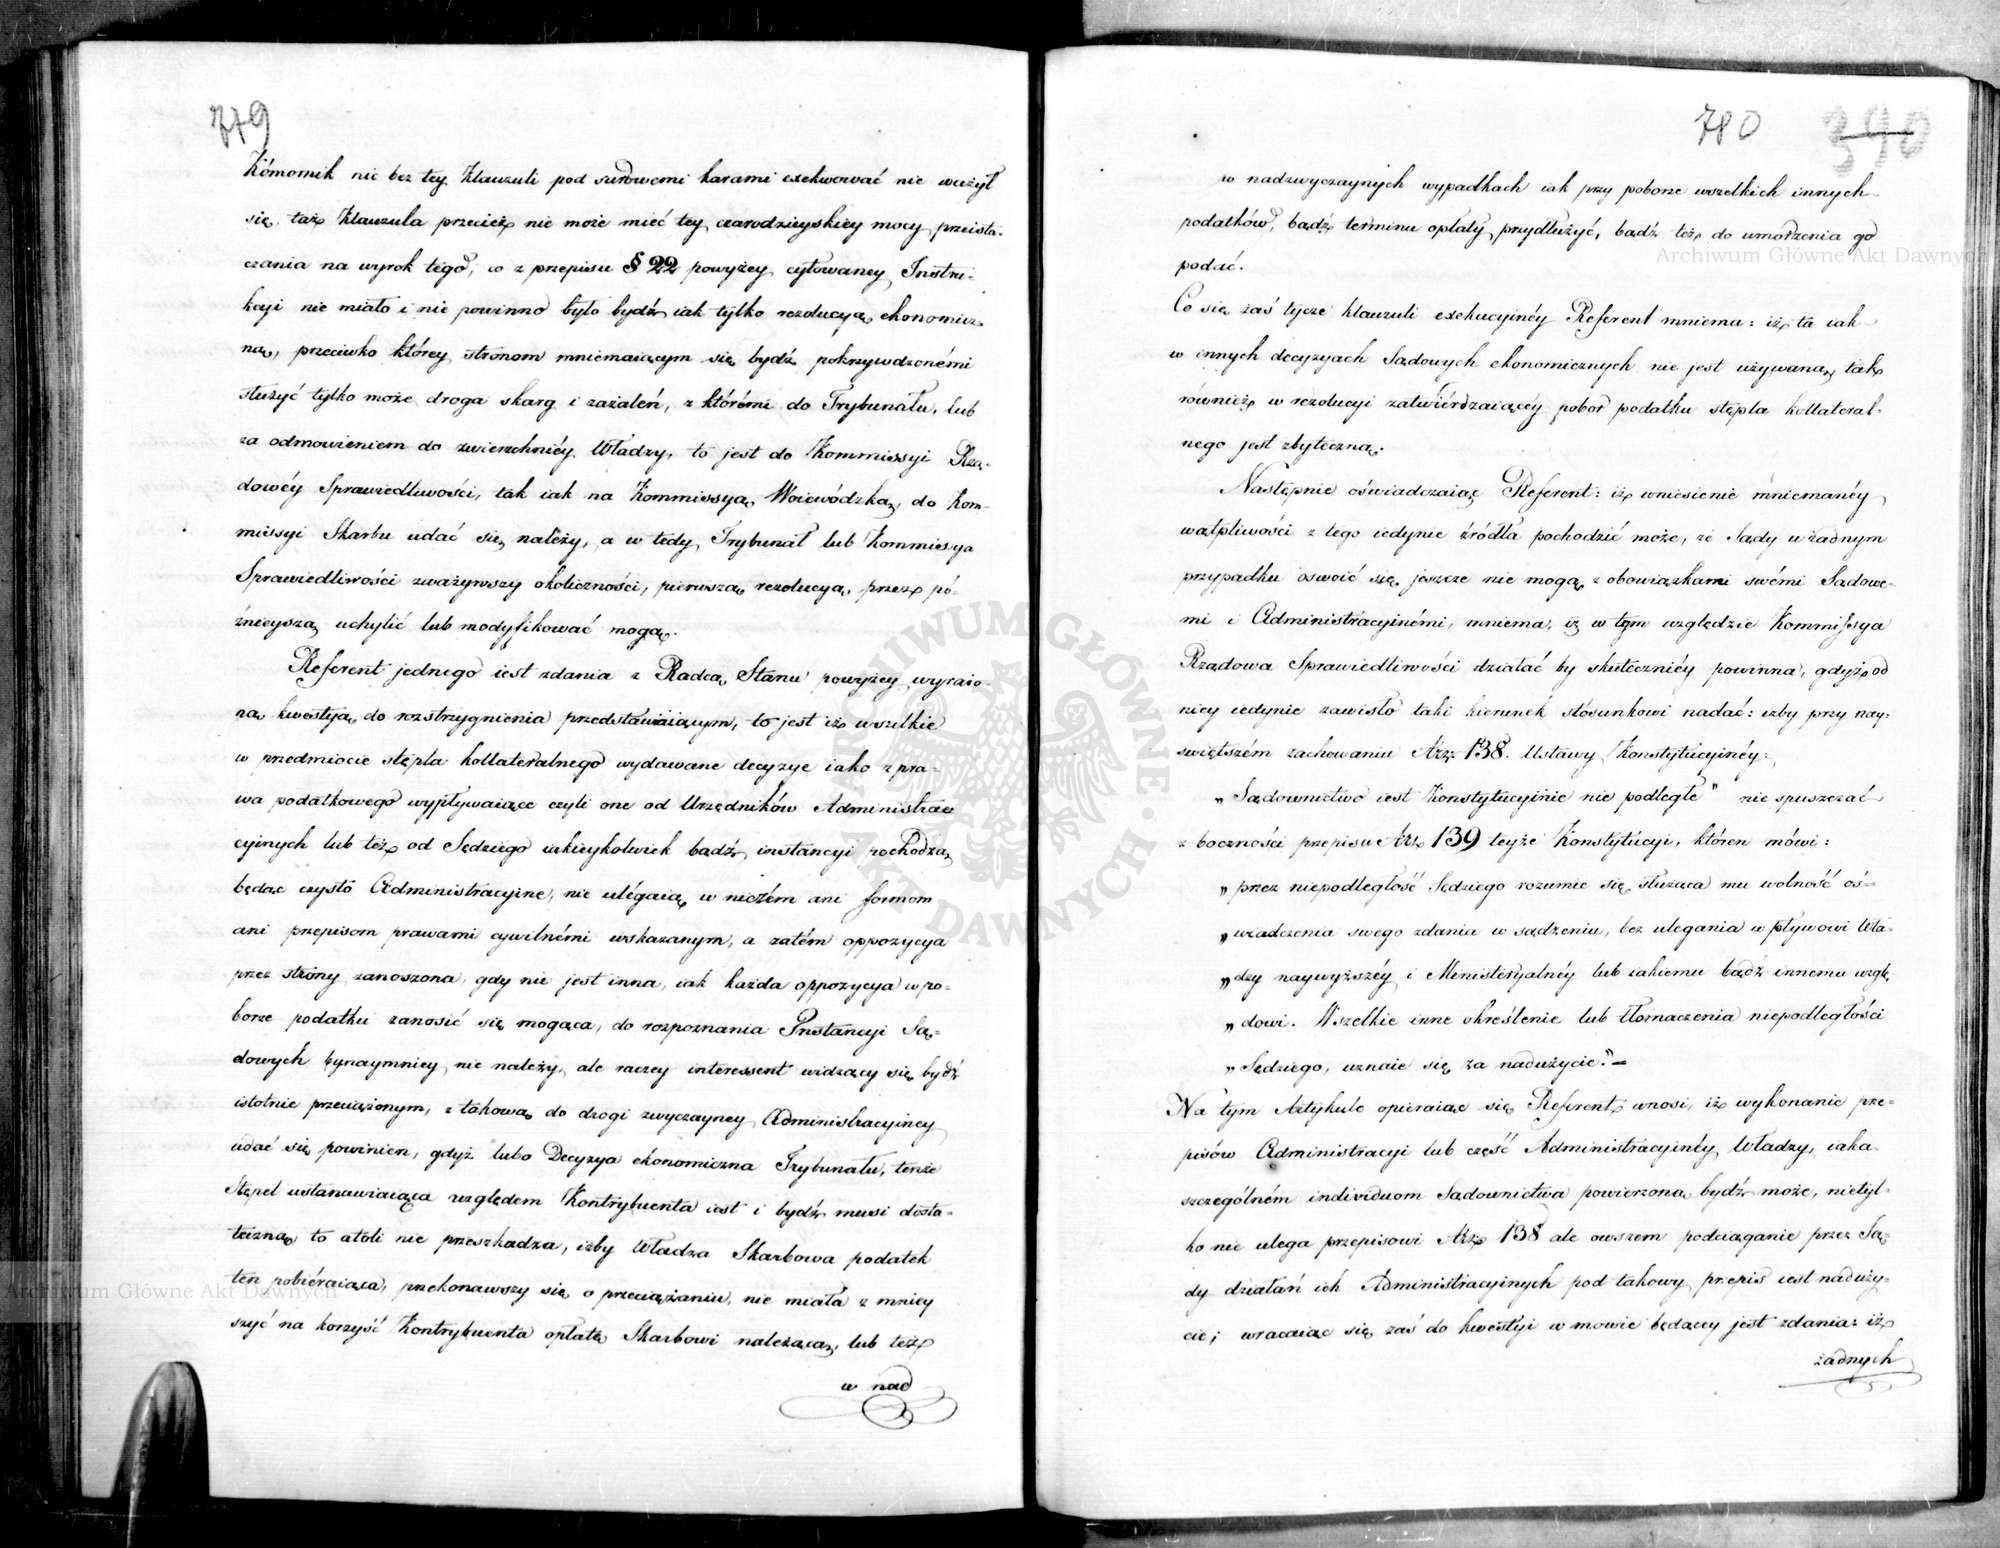 779
Kómornik nie bez tey Klauzuli pod surowemi karami exekwować nie ważył
się, taż Klauzula przecież nie może mieć tey czarodzieyskiey mocy przeista-
czania na wyrok tego, co z przepisu § 22 powyżey cytowaney Instru-
kcyi nie miało i nie powinno było bydź iak tylko rezolucyą ekonomicz
ną, przeciwko którey stronom mniemaiącym się bydź pokrzywdzonémi
służyć tylko może droga skarg i zażaleń, z którémi do Trybunału, lub
za odmowieniem do zwierzchniéy Władzy, to jest do Kommissyi Rzą-
dowéy Sprawiedliwości, tak iak na Kommissyą Woiewódzką, do Kom-
missyi Skarbu udać się należy, a w tedy Trybunał lub Kommissya
Sprawiedliwości zważywszy okoliczności, pierwszą rezolucyą, przez pó-
źnieyszą uchylić lub modyfikować mogą.
Referent jednego iest zdania z Radcą Stanu powyżey wyrażo-
ną kwestyą do rozstrzygnienia przedstawiaiącym, to jest iż wszelkie
w przedmiocie stępla kollateralnego wydawane decyzye iako z pra-
wa podatkowego wypływaiące czyli one od Urzędników Administra
cyinych lub też od Sędziego iakieykolwiek bądź instancyi pochodzą
będąc czysto Administracyine, nie ulégaią w niczém ani formom
ani przepisom prawami cywilnémi wskazanym, a zatém oppozycya
przez strony zanoszona, gdy nie jest inna, iak każda oppozycya w po-
borze podatku zanosić się mogąca, do rozpoznania Instancyi Są-
dowych bynaymniey nie należy, ale raczey interessent widzący się bydź
istotnie przeciążonym, z takową do drogi zwyczayney Administracyiney
udać się powinien, gdyż lubo Decyzya ekonomiczna Trybunału, tenże
Stępel ustanawiaiąca względem Kontrybuenta iest i bydź musi dosta-
teczną, to atoli nie przeszkadza, iżby Władza Skarbowa podatek
ten pobiéraiąca, przekonawszy się o przeciążaniu, nie miała z mniey
szyć na korzyść Kontrybuenta opłatę Skarbowi należącą, lub też
w nad
780 390
w nadzwyczaynych wypadkach iak przy poborze wszelkich innych
podatków, bądź terminu opłaty przydłużyć, bądź też do umorzenia go
podać.
Co się zaś tycze klauzuli exekucyinéy Referent mniema: iż ta iak
w innych decyzyach Sądowych ekonomicznych nie jest używaną, tak
również w rezolucyi zatwiérdzaiącéy pobor podatku stępla kollateral-
nego jest zbyteczną.
Następnie oświadczaiąc Referent: iż wniesienie mniemanéy
wątpliwości z tego iedynie źródła pochodzić może, że Sądy w żadnym
przypadku oswoić się jeszcze nie mogą z obowiązkami swémi Sądowe-
mi i Administracyinémi, mniema, iż w tym względzie Kommissya
Rządowa Sprawiedliwości działać by skuteczniéy powinna, gdyż od
niey iedynie zawisło taki kierunek stósunkowi nadać: iżby przy nay-
świętszém zachowaniu Arz. 138. Ustawy Konstytucyinéy:
„Sądownictwo iest Konstytucyinie nie podległe” nie spuszczać
z boczności przepisu Arz 139 teyże Konstytucyi, któren mówi:
„przez niepodległość Sędziego rozumie się służąca mu wolność oś=
„wiadczenia swego zdania w sądzeniu, bez ulegania wpływowi Wła-
„dzy naywyższéy i Ministeryalnéy lub iakiemu bądź innemu wzglę-
„dowi. Wszelkie inne określenie lub tłomaczenia niepodległości
„Sędziego, uznaie się za nadużycie.”=
Na tym Artykule opieraiąc się Referent wnosi, iż wykonanie prze-
pisów Administracyi lub część Administracyinéy Władzy, iaka
szczególném individuom Sądownictwa powierzoną bydź może, nietyl-
ko nie ulega przepisowi Arz 138 ale owszem podciąganie przez Są-
dy działań ich Administracyinych pod takowy przepis iest naduży-
cie; wracaiąc się zaś do kwestyi w mowie będącey jest zdania: iż
żadnych
ARCHIWUM GŁÓWNE AKT DAWNYCH
Archiwum Główne Akt Dawnych
Archiwum Główne Akt Dawnych